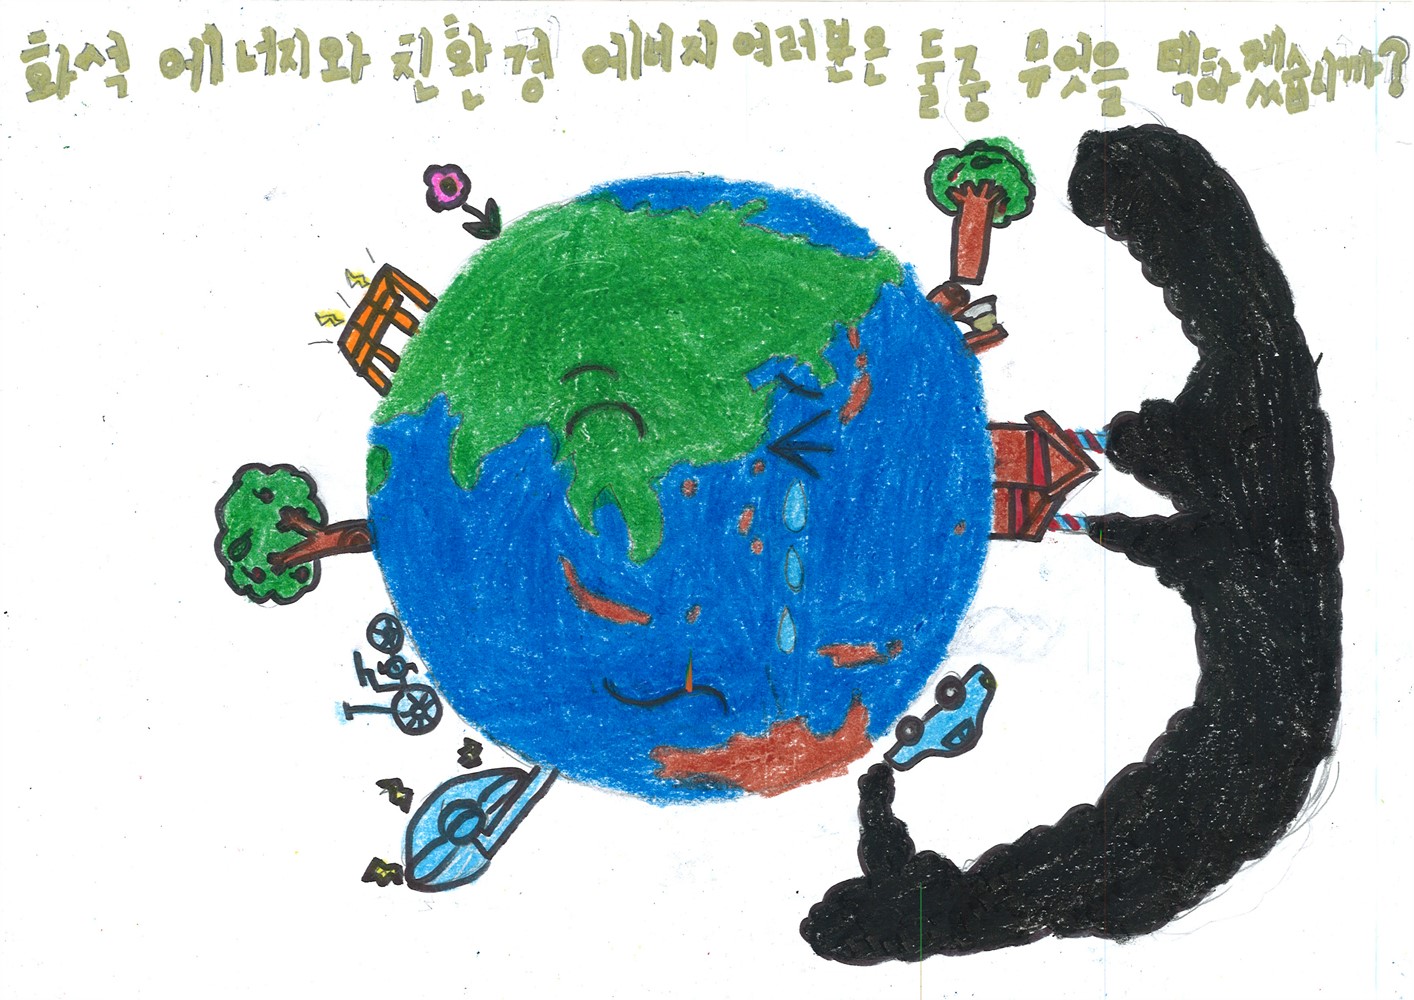 화석 에너지와 친환경 에너지 여러분은 둘중 무엇을 택하겠습니까?